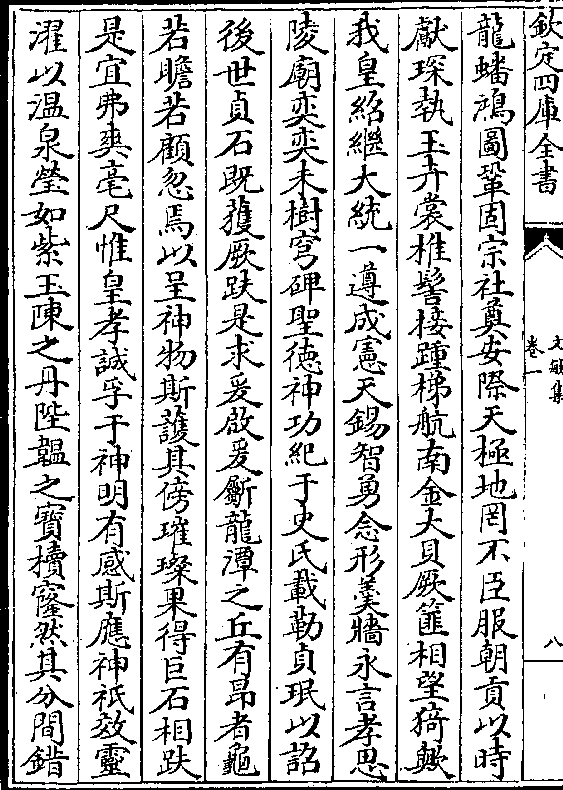 欽定四庫全書
文敏集
卷一
八
龍蟠鴻圖鞏固宗社奠安際天極地罔不臣服朝貢以時
獻琛執玉卉裳椎髻接踵梯航南金大貝厥篚相望猗歟
我皇紹繼大統一遵成憲天錫智勇念形羮牆永言孝思
陵廟奕奕未樹穹碑聖徳神功紀于史氏載勒貞珉以詔
後世貞石既蒦厥趺是求爰啟爰斸龍潭之丘有昂者龜
若瞻若顧忽焉以呈神物斯護其傍璀璨果得巨石相趺
是宜弗爽毫尺惟皇孝誠孚于神明有感斯應神祇效靈
濯以温泉瑩如紫玉陳之丹陛韞之寳櫝窿然其分間錯